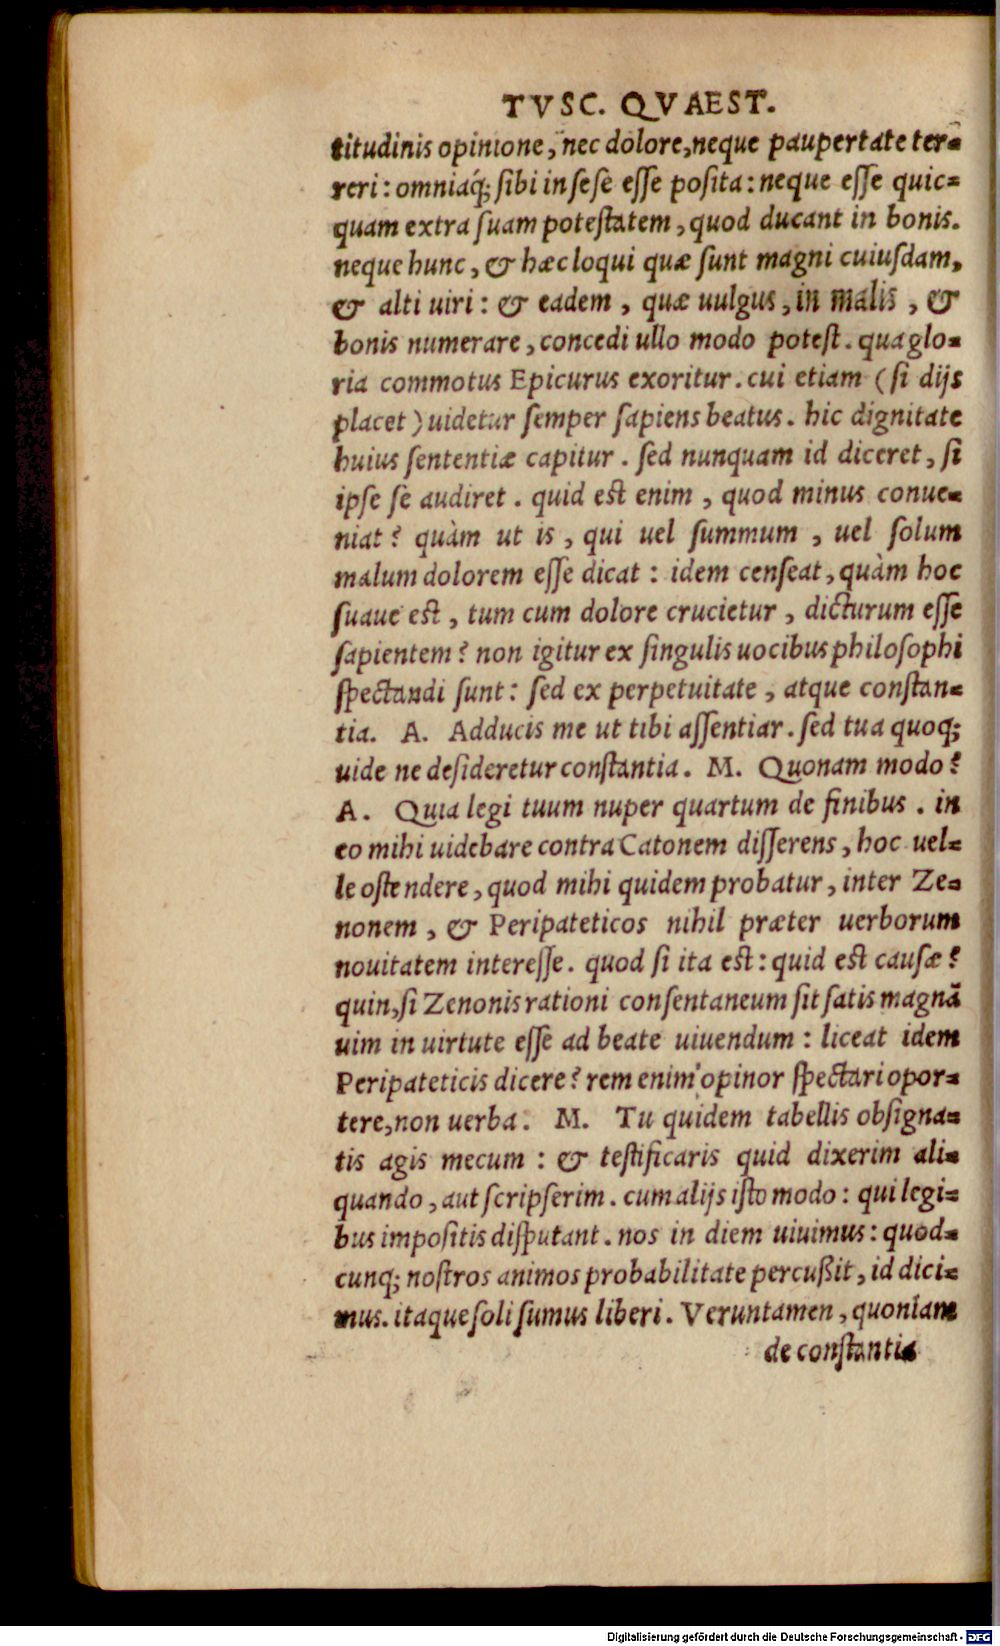 TVSC. QVAEST.
titudinis opinione, nec dolore, neque paupertate ter-
reri: omniaq́; sibi in sese esse posita: neque esse quic-
quam extra suam potestatem, quod ducant in bonis.
neque hunc, & hæc loqui quæ sunt magni cuiusdam,
& alti uiri: & eadem, quæ uulgus, in malis, &
bonis numerare, concedi ullo modo potest. qua glo-
ria commotus Epicurus exoritur. cui etiam (si dijs
placet) uidetur semper sapiens beatus. hic dignitate
huius sententiæ capitur. sed nunquam id diceret, si
ipse se audiret. quid est enim, quod minus conue-
niat? quàm ut is, qui uel summum, uel solum
malum dolorem esse dicat: idem censeat, quàm hoc
suaue est, tum cum dolore crucietur, dicturum esse
sapientem? non igitur ex singulis uocibus philosophi
spectandi sunt: sed ex perpetuitate, atque constan-
tia. A. Adducis me ut tibi assentiar. sed tua quoq;
uide ne desideretur constantia. M. Quonam modo?
A. Quia legi tuum nuper quartum de finibus. in
eo mihi uidebare contra Catonem disserens, hoc uel-
le ostendere, quod mihi quidem probatur, inter Ze-
nonem, & Peripateticos nihil præter uerborum
nouitatem interesse. quod si ita est: quid est causæ?
quin, si Zenonis rationi consentaneum sit satis magnã
uim in uirtute esse ad beate uiuendum: liceat idem
Peripateticis dicere? rem enim opinor spectari opor-
tere, non uerba. M. Tu quidem tabellis obsigna-
tis agis mecum: & testificaris quid dixerim ali-
quando, aut scripserim. cum alijs isto modo: qui legi-
bus impositis disputant. nos in diem uiuimus: quod-
cunq; nostros animos probabilitate percußit, id dici-
mus. itaque soli sumus liberi. Veruntamen, quoniam
de constantia
Digitalisierung gefördert durch die Deutsche Forschungsgemeinschaft - DFG